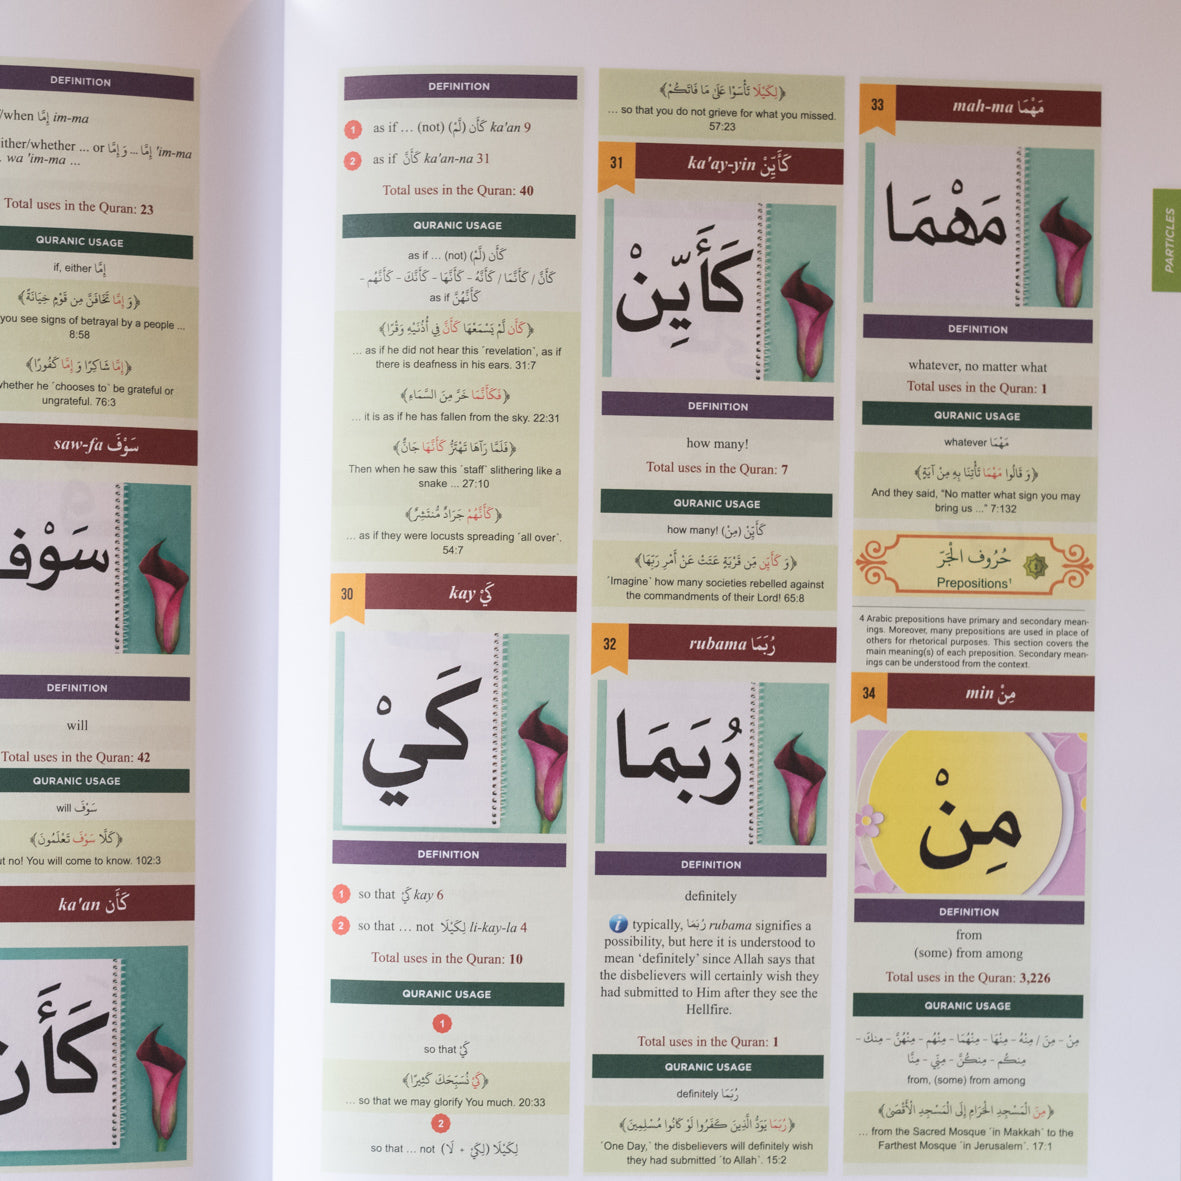 DEFINITION
/when إِمَّا im-ma
ither/whether ... or إِمَّا ... وَ إِمَّا 'im-ma
... wa 'im-ma ...
Total uses in the Quran: 23
QURANIC USAGE
if, either إِمَّا
﴿وَ إِمَّا تَخَافَنَّ مِن قَوْمٍ خِيَانَةً﴾
you see signs of betrayal by a people ...
8:58
﴿إِمَّا شَاكِرًا وَ إِمَّا كَفُورًا﴾
whether he ˹chooses to˺ be grateful or
ungrateful. 76:3
saw-fa سَوْفَ
سَوْفَ
DEFINITION
will
Total uses in the Quran: 42
QURANIC USAGE
will سَوْفَ
﴿كَلَّا سَوْفَ تَعْلَمُونَ﴾
ut no! You will come to know. 102:3
ka'an كَأَن
كَأَن
DEFINITION
1 as if ... (not) كَأَن (لَّمْ) ka'an 9
2 as if كَأَنَّ ka'an-na 31
Total uses in the Quran: 40
QURANIC USAGE
as if ... (not) كَأَن (لَّمْ)
كَأَنَّ / كَأَنَّمَا / كَأَنَّهُ - كَأَنَّهَا - كَأَنَّكَ - كَأَنَّهُم -
as if كَأَنَّهُنَّ
﴿كَأَن لَّمْ يَسْمَعْهَا كَأَنَّ فِي أُذُنَيْهِ وَقْرًا﴾
... as if he did not hear this ˹revelation˺, as if
there is deafness in his ears. 31:7
﴿فَكَأَنَّمَا خَرَّ مِنَ السَّمَاءِ﴾
... it is as if he has fallen from the sky. 22:31
﴿فَلَمَّا رَآهَا تَهْتَزُّ كَأَنَّهَا جَانٌّ﴾
Then when he saw this ˹staff˺ slithering like a
snake ... 27:10
﴿كَأَنَّهُمْ جَرَادٌ مُّنتَشِرٌ﴾
... as if they were locusts spreading ˹all over˺.
54:7
30 kay كَيْ
كَيْ
DEFINITION
1 so that كَيْ kay 6
2 so that ... not لِكَيْلَا li-kay-la 4
Total uses in the Quran: 10
QURANIC USAGE
1
so that كَيْ
﴿كَيْ نُسَبِّحَكَ كَثِيرًا﴾
... so that we may glorify You much. 20:33
2
so that ... not لِكَيْلَا (لِكَيْ + لَا)
﴿لِكَيْلَا تَأْسَوْا عَلَىٰ مَا فَاتَكُمْ﴾
... so that you do not grieve for what you missed.
57:23
31 ka'ay-yin كَأَيِّنْ
كَأَيِّنْ
DEFINITION
how many!
Total uses in the Quran: 7
QURANIC USAGE
how many! كَأَيِّنْ (مِنْ)
﴿وَ كَأَيِّن مِّن قَرْيَةٍ عَتَتْ عَنْ أَمْرِ رَبِّهَا﴾
˹Imagine˺ how many societies rebelled against
the commandments of their Lord! 65:8
32 rubama رُبَمَا
رُبَمَا
DEFINITION
definitely
i typically, رُبَمَا rubama signifies a
possibility, but here it is understood to
mean ‘definitely’ since Allah says that
the disbelievers will certainly wish they
had submitted to Him after they see the
Hellfire.
Total uses in the Quran: 1
QURANIC USAGE
definitely رُبَمَا
﴿رُبَمَا يَوَدُّ الَّذِينَ كَفَرُوا لَوْ كَانُوا مُسْلِمِينَ﴾
˹One Day,˺ the disbelievers will definitely wish
they had submitted ˹to Allah˺. 15:2
33 mah-ma مَهْمَا
مَهْمَا
DEFINITION
whatever, no matter what
Total uses in the Quran: 1
QURANIC USAGE
whatever مَهْمَا
﴿وَ قَالُوا مَهْمَا تَأْتِنَا بِهِ مِنْ آيَةٍ﴾
And they said, “No matter what sign you may
bring us ...” 7:132
حُرُوف الْجَرّ
Prepositions¹
4 Arabic prepositions have primary and secondary mean-
ings. Moreover, many prepositions are used in place of
others for rhetorical purposes. This section covers the
main meaning(s) of each preposition. Secondary mean-
ings can be understood from the context.
34 min مِنْ
مِنْ
DEFINITION
from
(some) from among
Total uses in the Quran: 3,226
QURANIC USAGE
مِنْ - مِنَ / مِنْهُ - مِنْهَا - مِنْهُمَا - مِنْهُم - مِنْهُنَّ - مِنكَ -
مِنكُم - مِنكُنَّ - مِنِّي - مِنَّا
from, (some) from among
﴿مِنَ الْمَسْجِدِ الْحَرَامِ إِلَى الْمَسْجِدِ الْأَقْصَى﴾
... from the Sacred Mosque ˹in Makkah˺ to the
Farthest Mosque ˹in Jerusalem˺. 17:1
PARTICLES